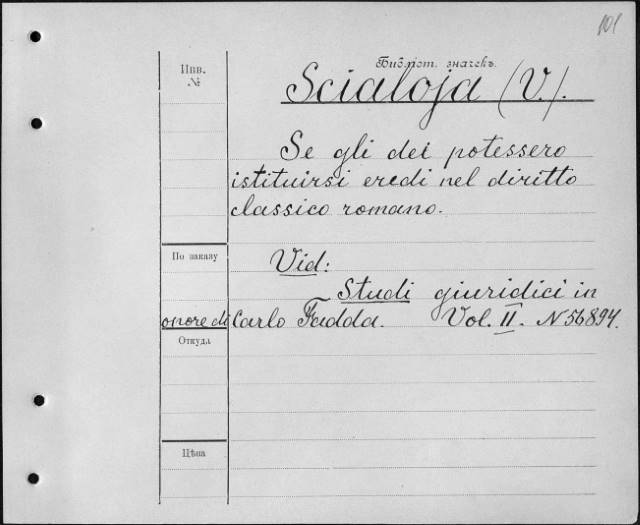 101
Библіот. значекъ.
Инв.
№
Scialoja (V.).
Se gli dei potessero
istituirsi eredi nel diritto
classico romano.
По заказу
Vid:
Studi giuridici in
onore di Carlo Fadda. Vol. II. N 56894.
Откуда
Цѣна